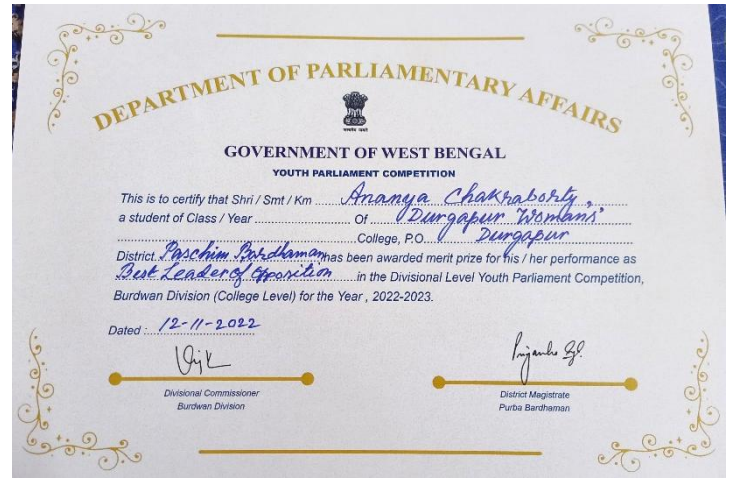 DEPARTMENT OF PARLIAMENTARY AFFAIRS
GOVERNMENT OF WEST BENGAL
YOUTH PARLIAMENT COMPETITION
This is to certify that Shri / Smt / Km Ananya Chakraborty,
a student of Class / Year Of Durgapur Womans'
College, P.O. Durgapur
District Paschim Bardhaman has been awarded merit prize for his / her performance as
Best Leader of Opposition in the Divisional Level Youth Parliament Competition,
Burdwan Division (College Level) for the Year , 2022-2023.
Dated : 12-11-2022
Divisional Commissioner
Burdwan Division
District Magistrate
Purba Bardhaman